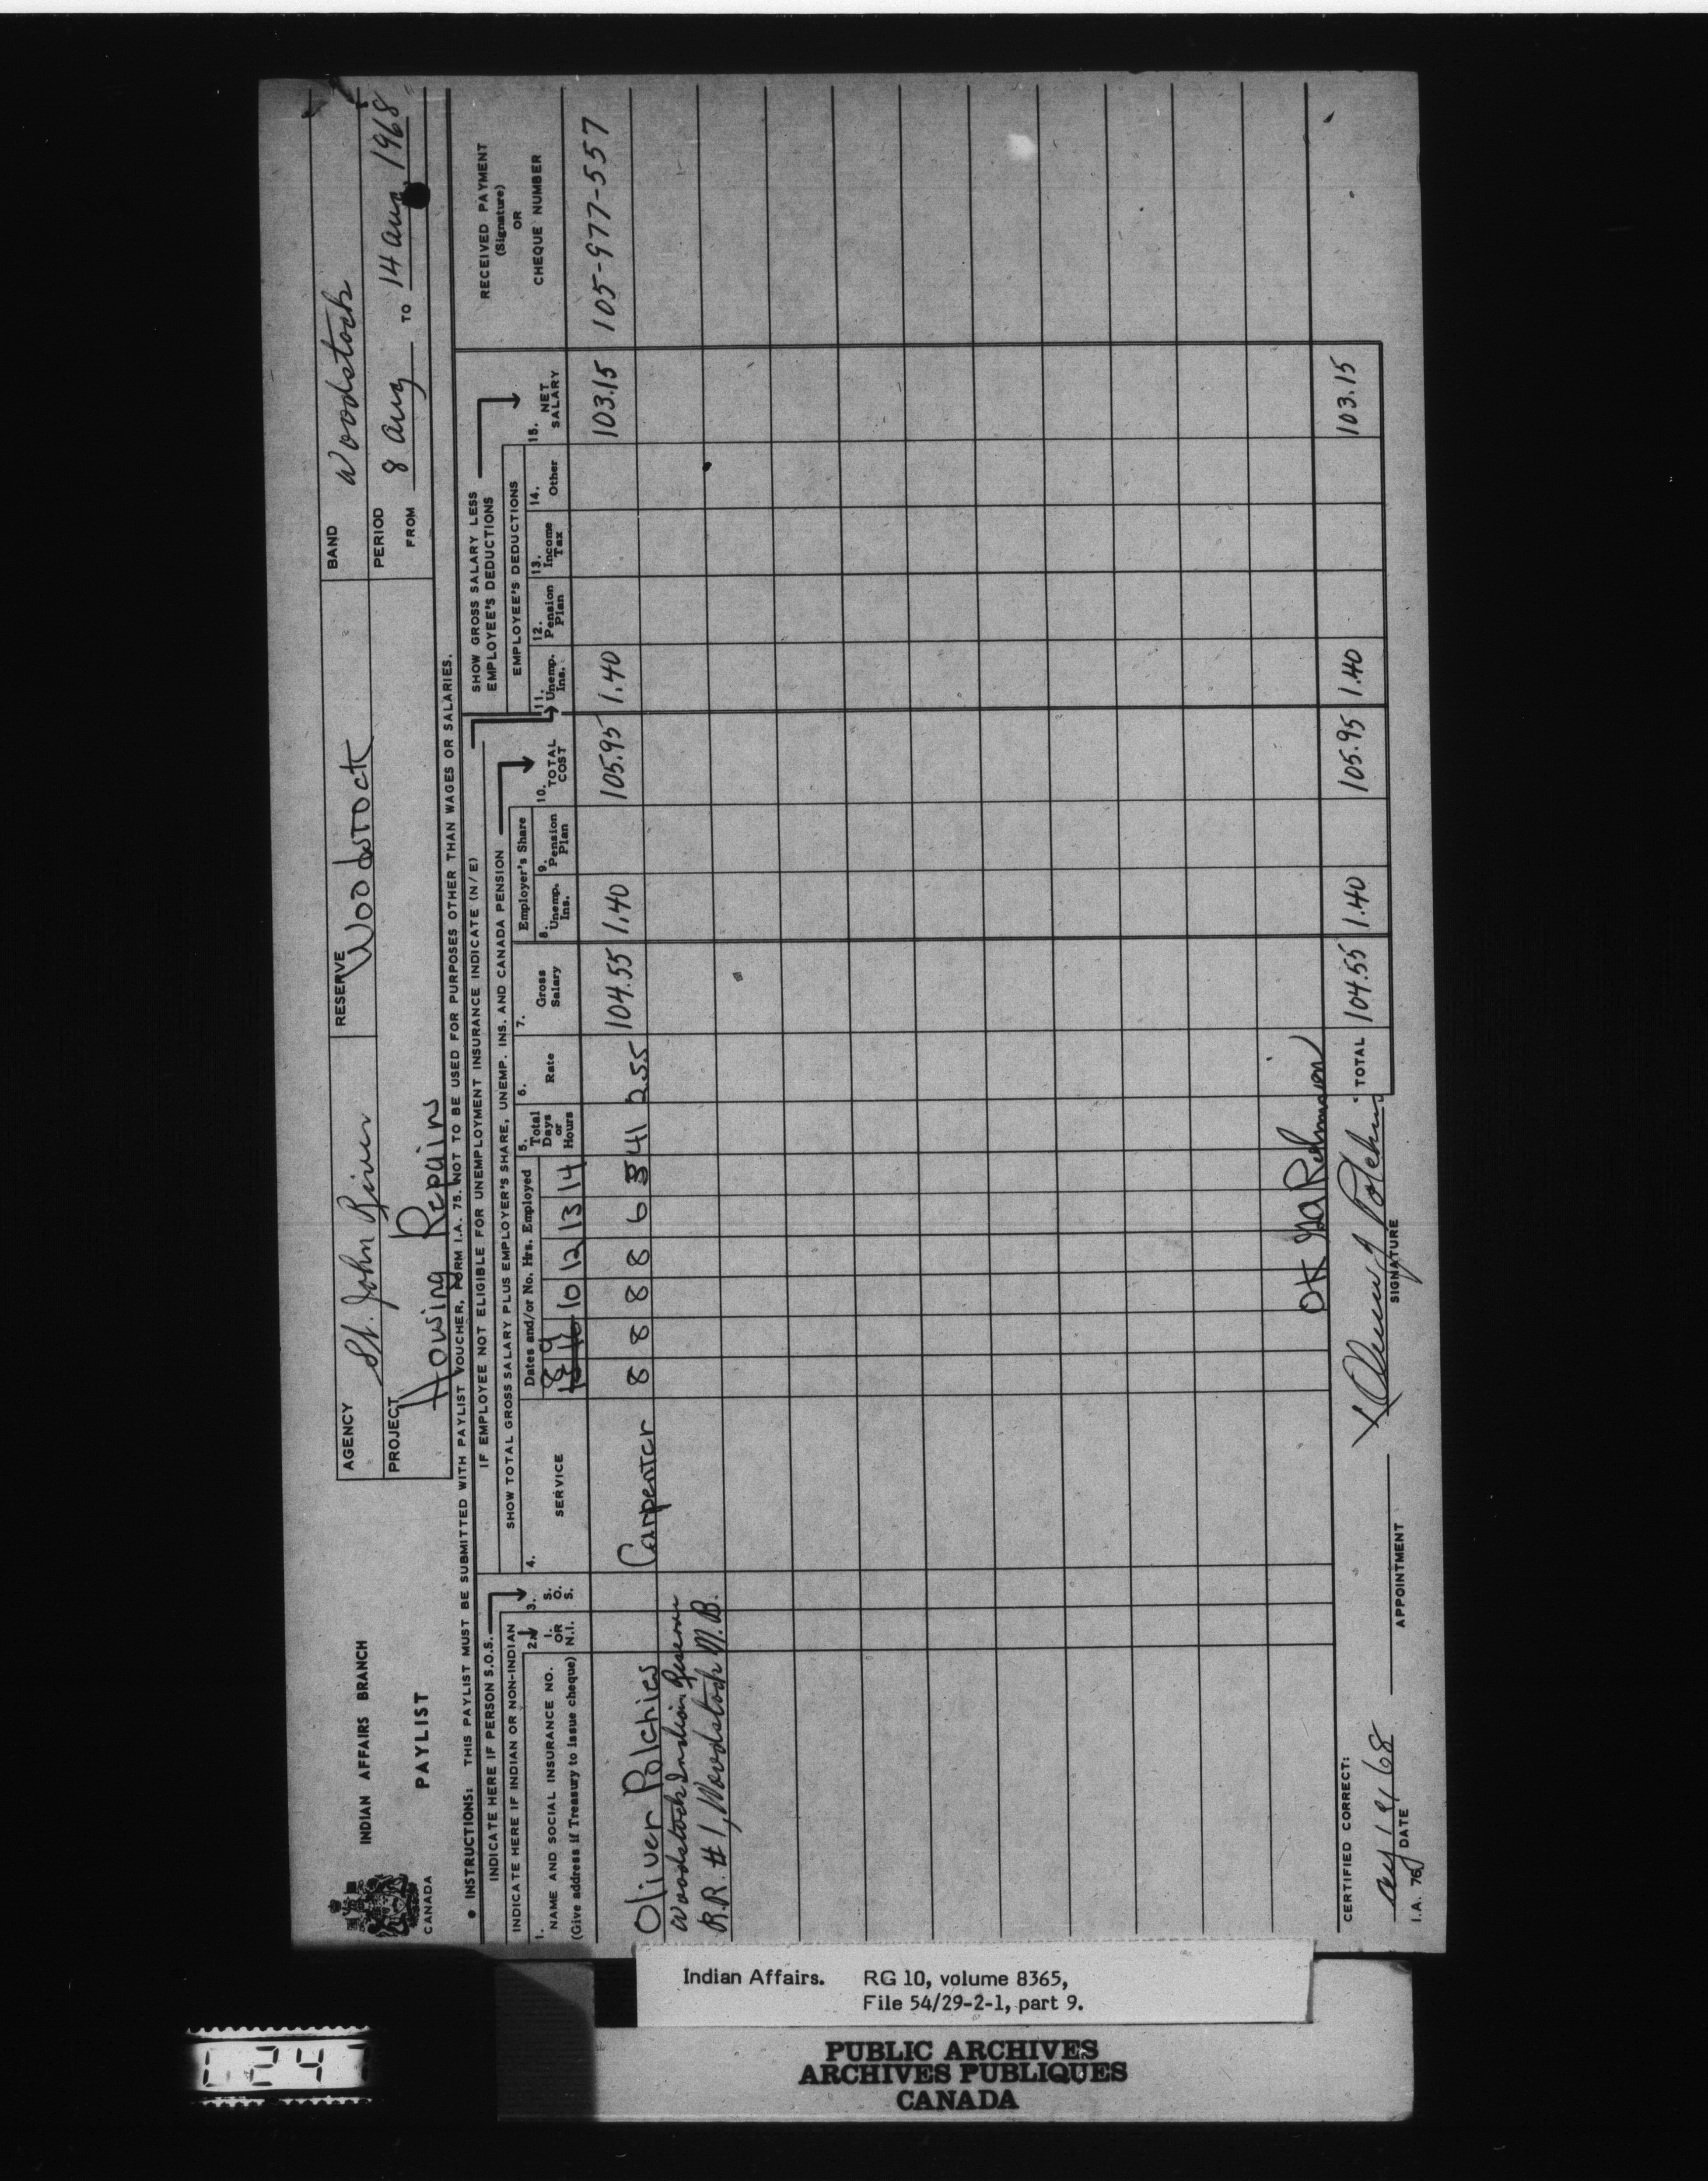 INDIAN AFFAIRS BRANCH
CANADA
PAYLIST
AGENCY St. John River
RESERVE Woodstock
BAND Woodstock
PROJECT Housing Repairs
PERIOD
FROM 8 Aug TO 14 Aug, 1968
• INSTRUCTIONS: THIS PAYLIST MUST BE SUBMITTED WITH PAYLIST VOUCHER, FORM I.A. 75. NOT TO BE USED FOR PURPOSES OTHER THAN WAGES OR SALARIES.
INDICATE HERE IF PERSON S.O.S.
IF EMPLOYEE NOT ELIGIBLE FOR UNEMPLOYMENT INSURANCE INDICATE (N/E)
SHOW GROSS SALARY LESS
EMPLOYEE'S DEDUCTIONS
INDICATE HERE IF INDIAN OR NON-INDIAN
SHOW TOTAL GROSS SALARY PLUS EMPLOYER'S SHARE, UNEMP. INS. AND CANADA PENSION
EMPLOYEE'S DEDUCTIONS
1. NAME AND SOCIAL INSURANCE NO.
(Give address if Treasury to issue cheque)
2. I. OR N.I.
3. S. O. S.
4. SERVICE
Dates and/or No. Hrs. Employed
8 9 10 12 13 14
5. Total Days or Hours
6. Rate
7. Gross Salary
Employer's Share
8. Unemp. Ins.
9. Pension Plan
10. TOTAL COST
11. Unemp. Ins.
12. Pension Plan
13. Income Tax
14. Other
15. NET SALARY
RECEIVED PAYMENT
(Signature)
OR
CHEQUE NUMBER
Oliver Polchies Carpenter 8 8 8 8 6 3 41 2.55 104.55 1.40 105.95 1.40 103.15 105-977-557
Woodstock Indian Reserve
R.R. # 1, Woodstock N.B.
OK
CERTIFIED CORRECT:
TOTAL 104.55 1.40 105.95 1.40 103.15
DATE
APPOINTMENT
SIGNATURE
I.A. 76
Indian Affairs. RG 10, volume 8365,
File 54/29-2-1, part 9.
PUBLIC ARCHIVES
ARCHIVES PUBLIQUES
CANADA